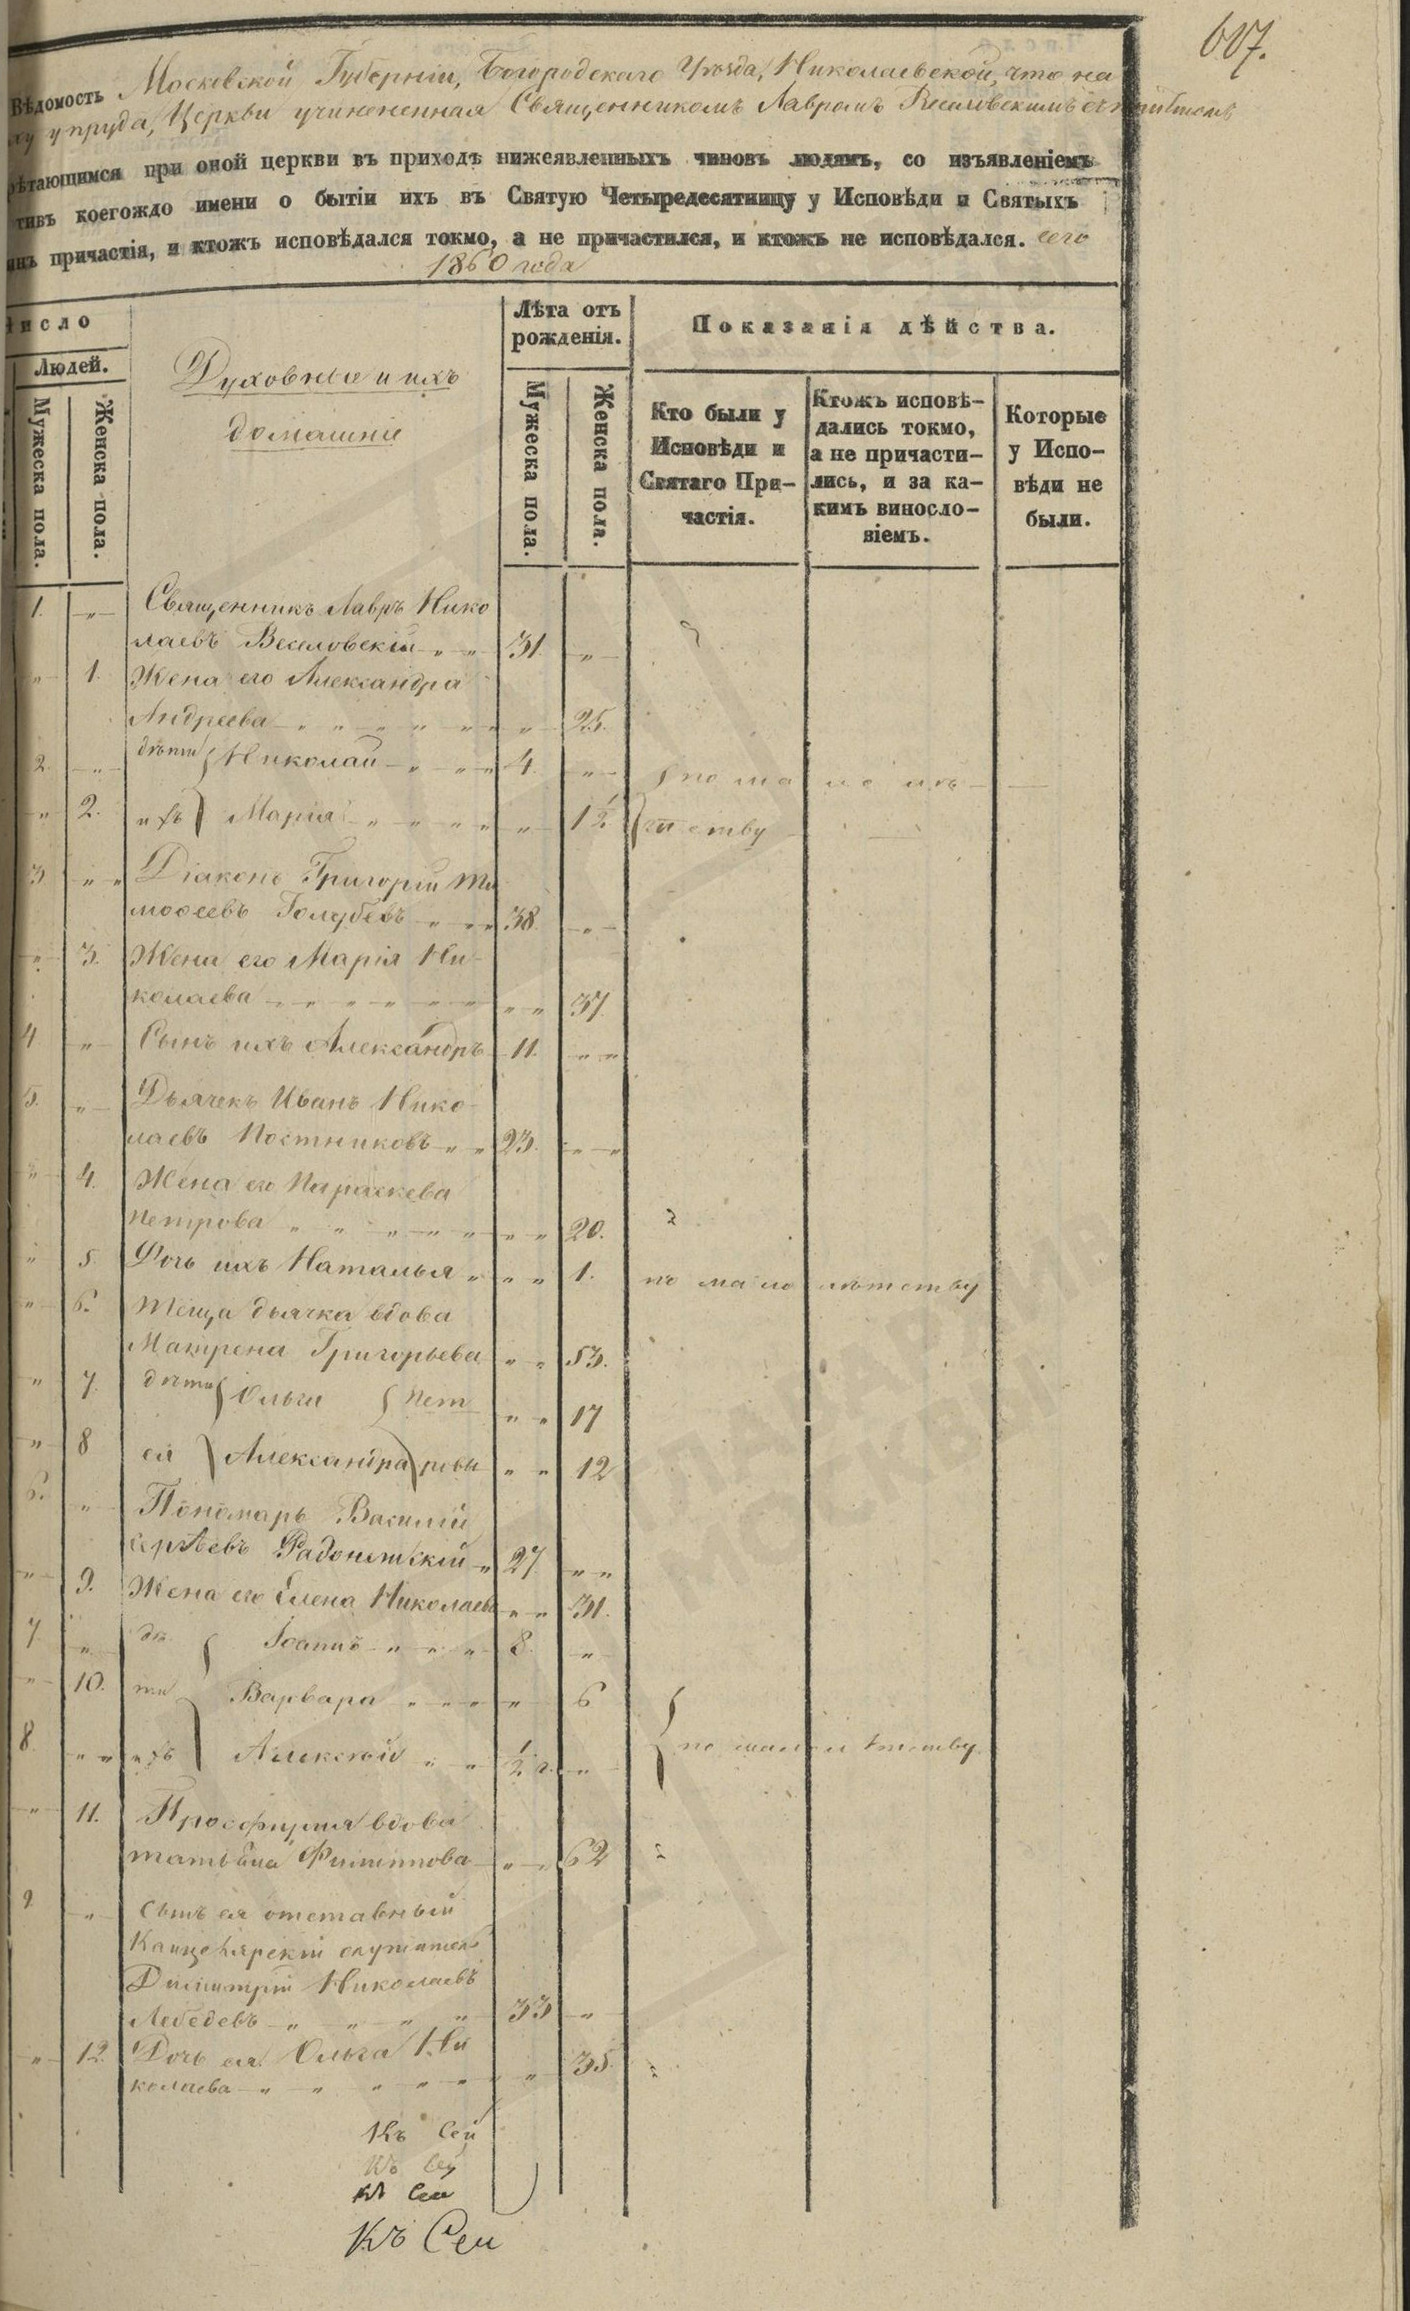 607.
Вѣдомость Московской Губерніи, Богородскаго Уѣзда, Николаевской, что на
у пруда, Церкви учиненная Священникомъ Лавромъ Веселовскимъ съ причтомъ
рѣтающимся при оной церкви въ приходѣ нижеявленныхъ чиновъ людямъ, со изъявленіемъ
тивъ коегождо имени о бытіи ихъ въ Святую Четыредесятницу у Исповѣди и Святыхъ
инъ причастія, и ктожъ исповѣдался токмо, а не причастился, и ктожъ не исповѣдался. сего
1860 года
Число
Людей.
Мужеска пола.
Женска пола.
Духовные и ихъ
домашніе
Лѣта отъ
рожденія.
Мужеска пола.
Женска пола.
Показанія дѣйства.
Кто были у
Исповѣди и
Святаго При-
частія.
Ктожъ исповѣ-
дались токмо,
а не причасти-
лись, и за ка-
кимъ виносло-
віемъ.
Которые
у Испо-
вѣди не
были.
1. „ Священникъ Лавръ Нико
лаевъ Веселовскій „ „ 31. „
„ 1. Жена его Александра
Андреева „ „ „ „ „ „ „ 25.
2. „ дѣти Николай „ „ „ 4. „ по мало лѣ
„ 2. ихъ Марія „ „ „ „ „ 1½ тству
3 „ „ Діаконъ Григорій Ти
моѳеевъ Голубевъ „ „ „ 38. „
„ 3. Жена его Марія Ни-
колаева „ „ „ „ „ „ „ „ 37.
4 „ Сынъ ихъ Александръ 11. „ „
5. „ Дьячекъ Иванъ Нико-
лаевъ Постниковъ „ „ 23. „ „
„ 4. Жена его Параскева
Петрова „ „ „ „ „ „ „ 20.
„ 5. Дочь ихъ Наталья „ „ „ 1. по мало лѣтству
„ 6. Теща дьячка вдова
Матрена Григорьева „ „ 53.
„ 7. дѣти Ольга Пет „ „ 17
„ 8 ея Александра ровы „ „ 12
6. „ Пономарь Василій
Сергѣевъ Радонежскій „ 27 „ „
„ 9. Жена его Елена Николаева „ „ 31.
7 „ дѣ Іоаннъ „ „ „ 8. „
„ 10. ти Варвара „ „ „ „ 6
8. „ „ ихъ Алексѣй „ „ ½ г. „ по мало лѣтству
„ 11. Просфирня вдова
Татьяна Филиппова „ „ 62
9 „ Сынъ ея отставный
Канцелярскій служитель
Димитрій Николаевъ
Лебедевъ „ „ „ „ 33 „
„ 12. Дочь ея Ольга Ни
колаева „ „ „ „ „ „ 35.
Къ Сей
Къ Сей
Къ Сей
Къ Сей
ГЛАВАРХИВ
МОСКВЫ